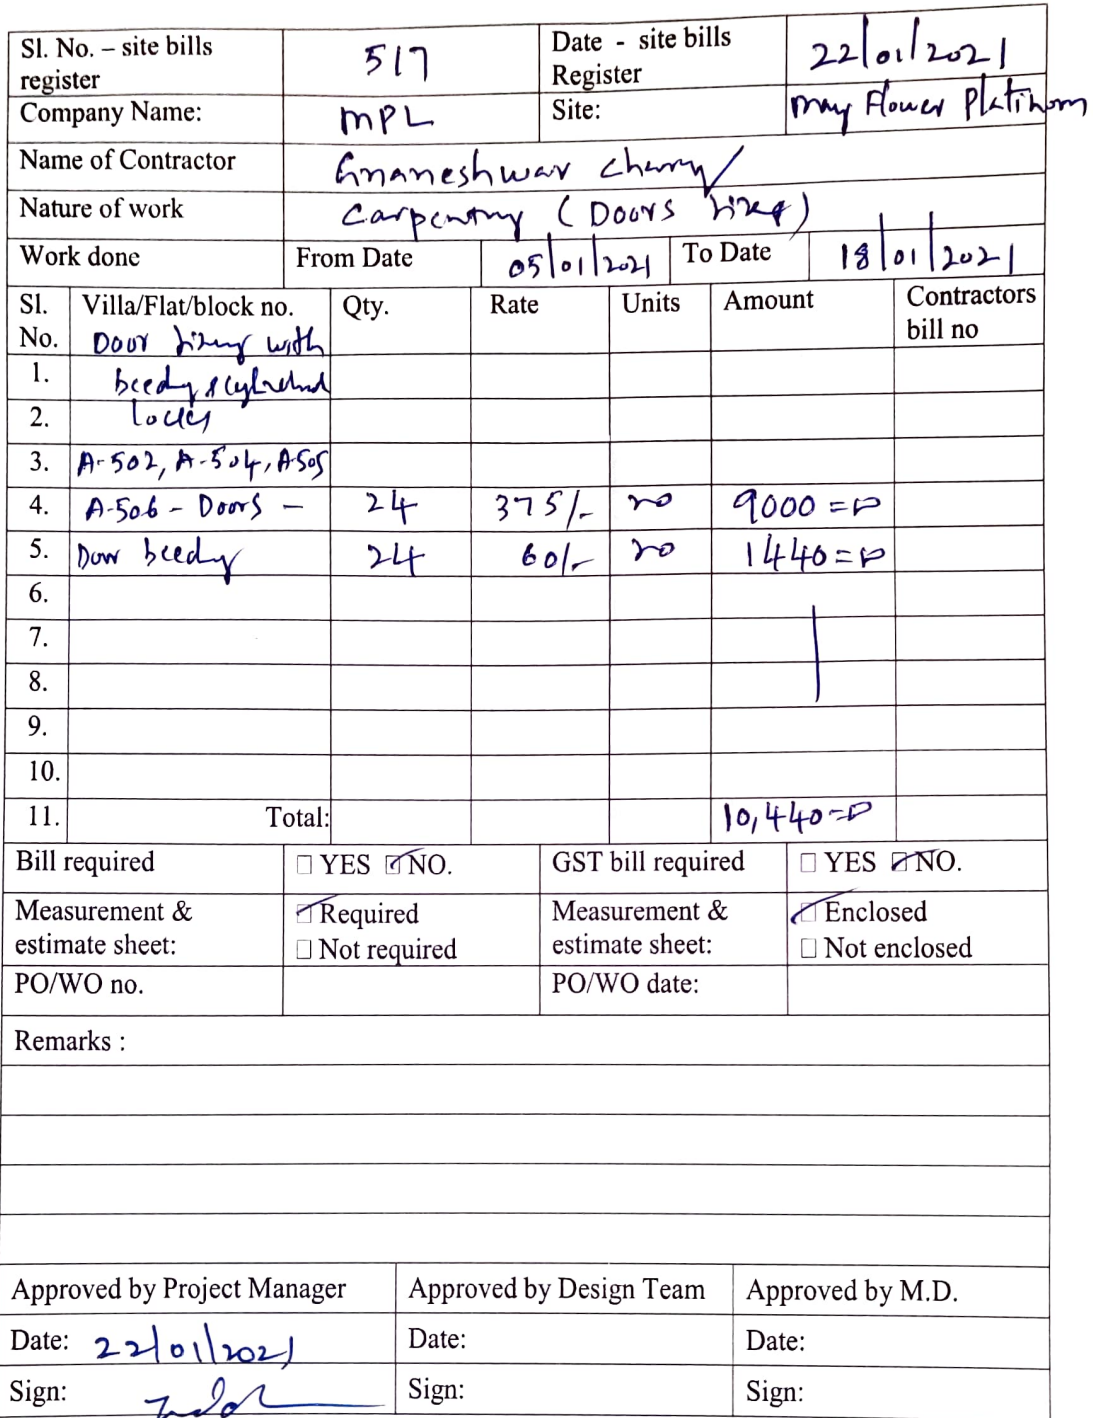 Sl. No. – site bills register 517 Date - site bills Register 22/01/2021
Company Name: MPL Site: May Flower Platinom
Name of Contractor Gnaneshwar Charry
Nature of work Carpentry (Doors
Work done From Date 05/01/2021 To Date 18/01/2021
Sl. No. Villa/Flat/block no. Qty. Rate Units Amount Contractors bill no
Door with
1. beedy &
2. locks
3. A-502, A-504, A-505
4. A-506 - Doors - 24 375/- no 9000=00
5. Door beedy 24 60/- no 1440=00
6.
7.
8.
9.
10.
11. Total: 10,440=00
Bill required ☐ YES ☑ NO. GST bill required ☐ YES ☑ NO.
Measurement & estimate sheet: ☑ Required Measurement & estimate sheet: ☑ Enclosed
☐ Not required ☐ Not enclosed
PO/WO no. PO/WO date:
Remarks :
Approved by Project Manager Approved by Design Team Approved by M.D.
Date: 22/01/2021 Date: Date:
Sign: Sign: Sign: